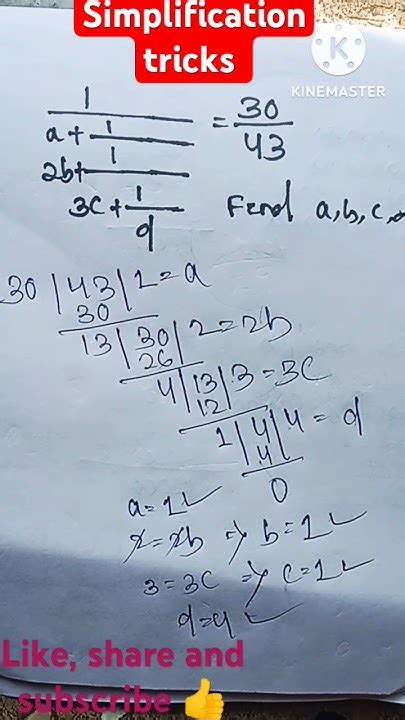 Simplification
tricks
KINEMASTER
1
a + 1
2b + 1
3c + 1
d
= 30
43
Find a, b, c,
30 | 43 | 1 = a
30
13 | 30 | 2 = 2b
26
4 | 13 | 3 = 3c
12
1 | 4 | 4 = d
4
0
a = 1 ✓
2 = 2b => b = 1 ✓
3 = 3c => c = 1 ✓
d = 4 ✓
Like, share and
subscribe 👍